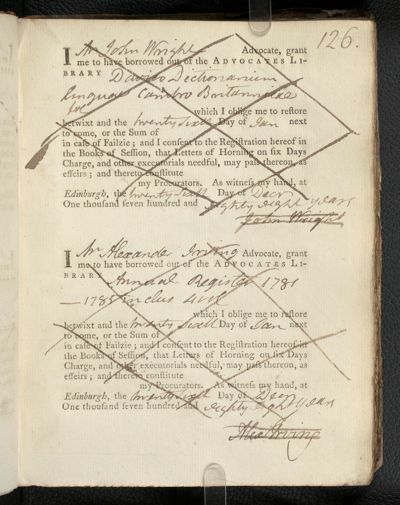 126.
I Mr John Wright Advocate, grant
me to have borrowed out of the ADVOCATES LI-
BRARY Davies Dictionarium
linguae Cambro Britannicae
&c
which I oblige me to reſtore
betwixt and the twenty Sixth Day of Jan next
to come, or the Sum of
in caſe of Failzie; and I conſent to the Regiſtration hereof in
the Books of Seſſion, that Letters of Horning on ſix Days
Charge, and other executorials needful, may paſs thereon, as
effeirs; and thereto conſtitute
my Procurators. As witneſs my hand, at
Edinburgh, the twenty Sixth Day of Decr
One thouſand ſeven hundred and eighty eight years
John Wright
I Mr Alexander Irving Advocate, grant
me to have borrowed out of the ADVOCATES LI-
BRARY Annual Register 1781
— 1785 inclusive
which I oblige me to reſtore
betwixt and the twenty Sixth Day of Jan next
to come, or the Sum of
in caſe of Failzie; and I conſent to the Regiſtration hereof in
the Books of Seſſion, that Letters of Horning on ſix Days
Charge, and other executorials needful, may paſs thereon, as
effeirs; and thereto conſtitute
my Procurators. As witneſs my hand, at
Edinburgh, the twenty Sixth Day of Decr
One thouſand ſeven hundred and eighty eight years
Alex Irving